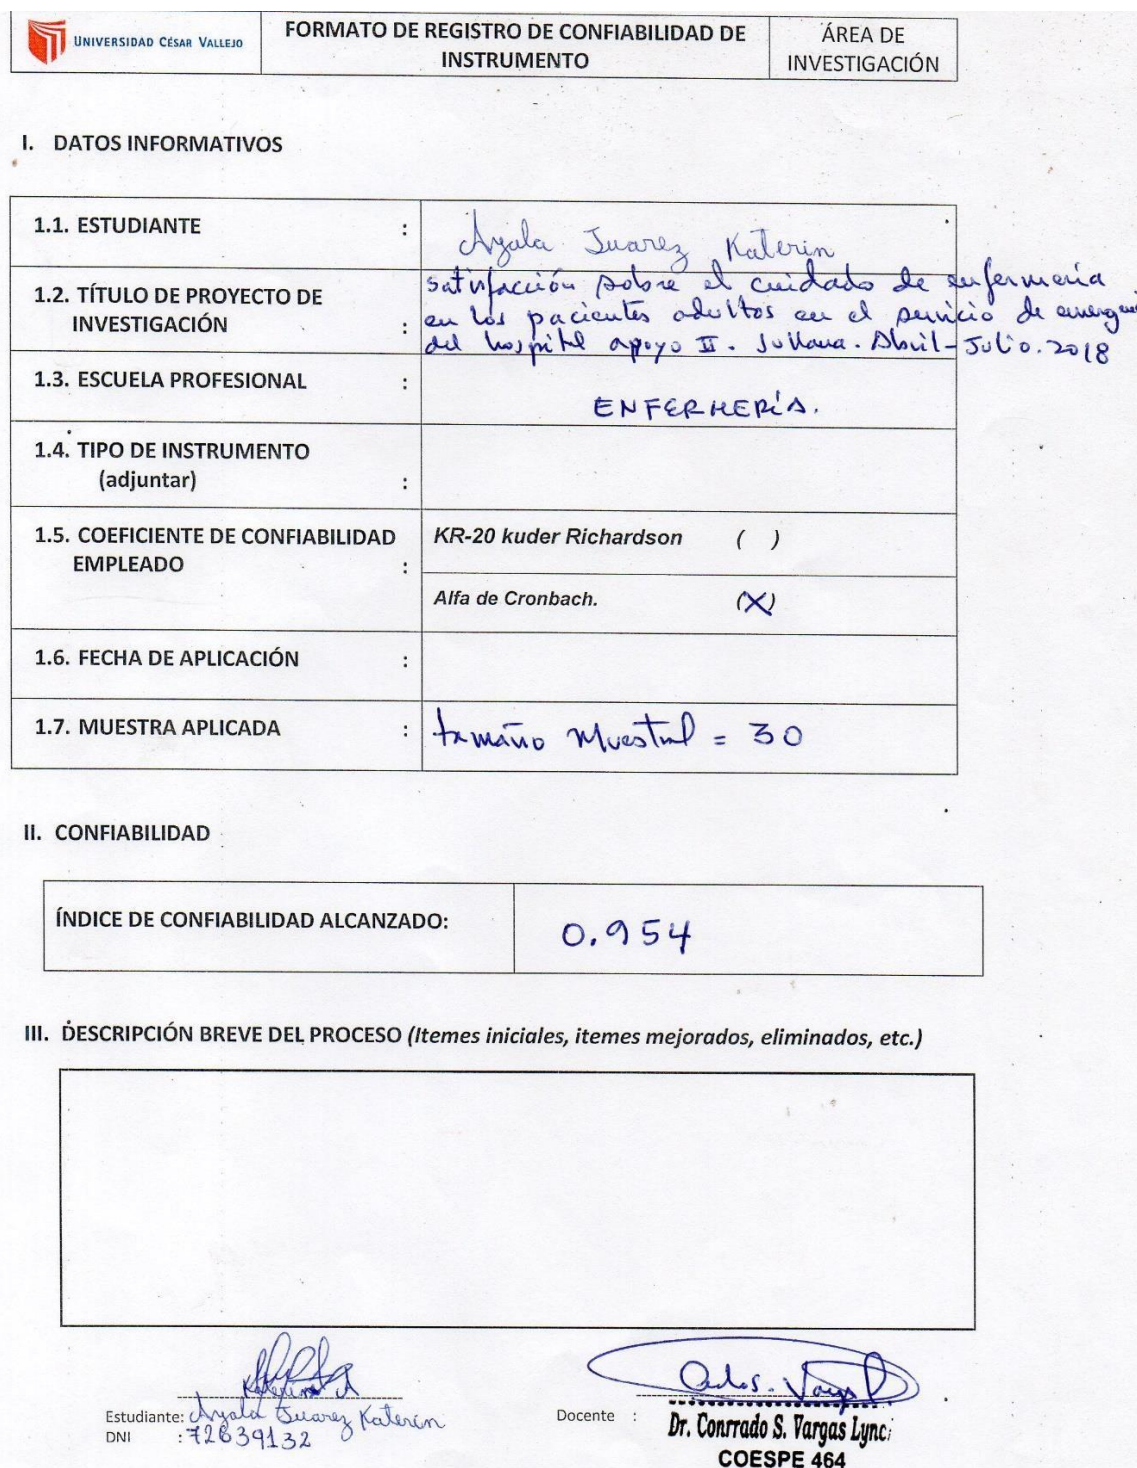 UNIVERSIDAD CÉSAR VALLEJO
FORMATO DE REGISTRO DE CONFIABILIDAD DE
INSTRUMENTO
ÁREA DE
INVESTIGACIÓN
I. DATOS INFORMATIVOS
1.1. ESTUDIANTE :
Ayala Juarez Katerin
1.2. TÍTULO DE PROYECTO DE
INVESTIGACIÓN :
satisfacción sobre el cuidado de enfermería
en los pacientes adultos en el servicio de
del hospital apoyo II. Sullana. Abril-Julio.2018
1.3. ESCUELA PROFESIONAL :
ENFERMERÍA.
1.4. TIPO DE INSTRUMENTO
(adjuntar) :
1.5. COEFICIENTE DE CONFIABILIDAD
EMPLEADO :
KR-20 kuder Richardson ( )
Alfa de Cronbach. (X)
1.6. FECHA DE APLICACIÓN :
1.7. MUESTRA APLICADA :
tamaño Muestral = 30
II. CONFIABILIDAD
ÍNDICE DE CONFIABILIDAD ALCANZADO:
0.954
III. DESCRIPCIÓN BREVE DEL PROCESO (Itemes iniciales, itemes mejorados, eliminados, etc.)
Estudiante: Ayala Juarez Katerin
DNI : 72639132
Docente :
Dr. Conrrado S. Vargas Lync
COESPE 464